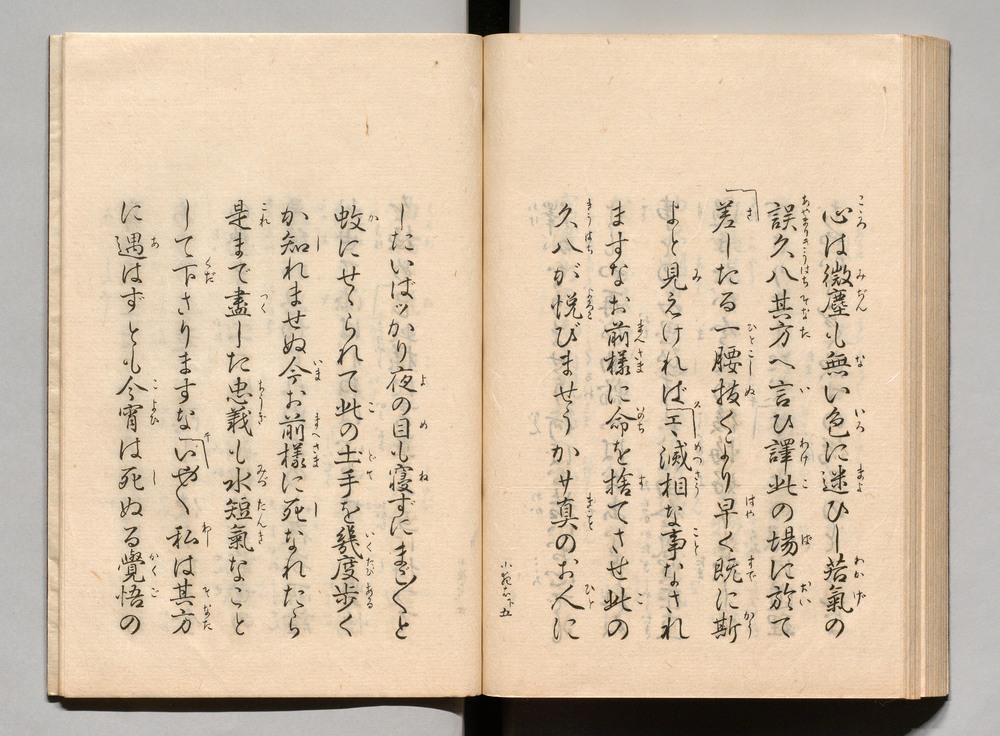 心は微塵も無い色に迷ひし若氣の
誤久八其方へ言ひ譯此の場に於て
差したる一腰抜くより早く既に斯
よと見えければ「エヽ滅相な事なされ
ますなお前様に命を捨てさせ此の
久八が悦びませうかサ真のお人に
小菀右下五
したいばッかり夜の目も寝ずにまぢ〳〵と
蚊にせゝられて此の土手を幾度歩く
か知れませぬ今お前様に死なれたら
是まで盡した忠義も水短氣なこと
して下さりますな「いや〳〵私は其方
に遇はずとも今宵は死ぬる覺悟の